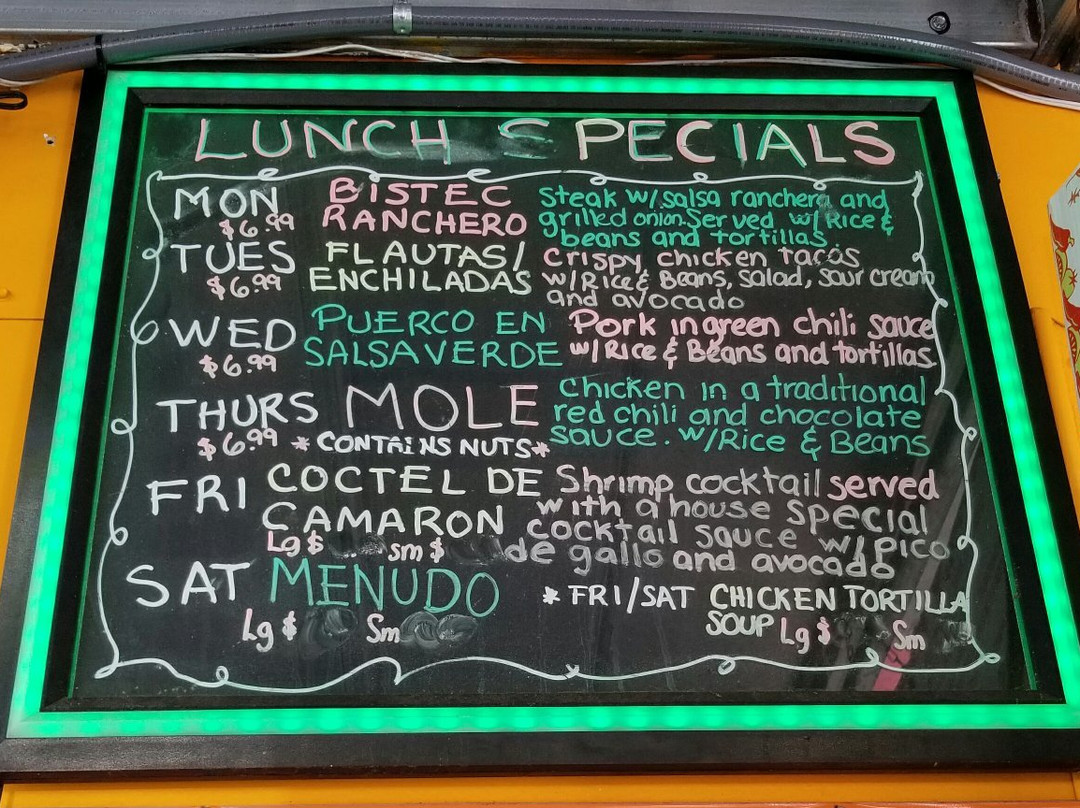 LUNCH SPECIALS
MON BISTEC RANCHERO Steak w/salsa ranchera and
$6.99 grilled onion. Served w/ Rice &
beans and tortillas
TUES FLAUTAS/ Crispy chicken tacos
$6.99 ENCHILADAS w/Rice & Beans, salad, sour cream
and avocado
WED PUERCO EN Pork in green chili sauce
$6.99 SALSA VERDE w/Rice & Beans and tortillas.
THURS MOLE Chicken in a traditional
red chili and chocolate
$6.99 *CONTAINS NUTS* sauce. w/Rice & Beans
FRI COCTEL DE Shrimp cocktail served
CAMARON with a house special
cocktail sauce w/Pico
Lg $ sm $ de gallo and avocado
SAT MENUDO * FRI/SAT CHICKEN TORTILLA
Lg $ Sm SOUP Lg $ Sm